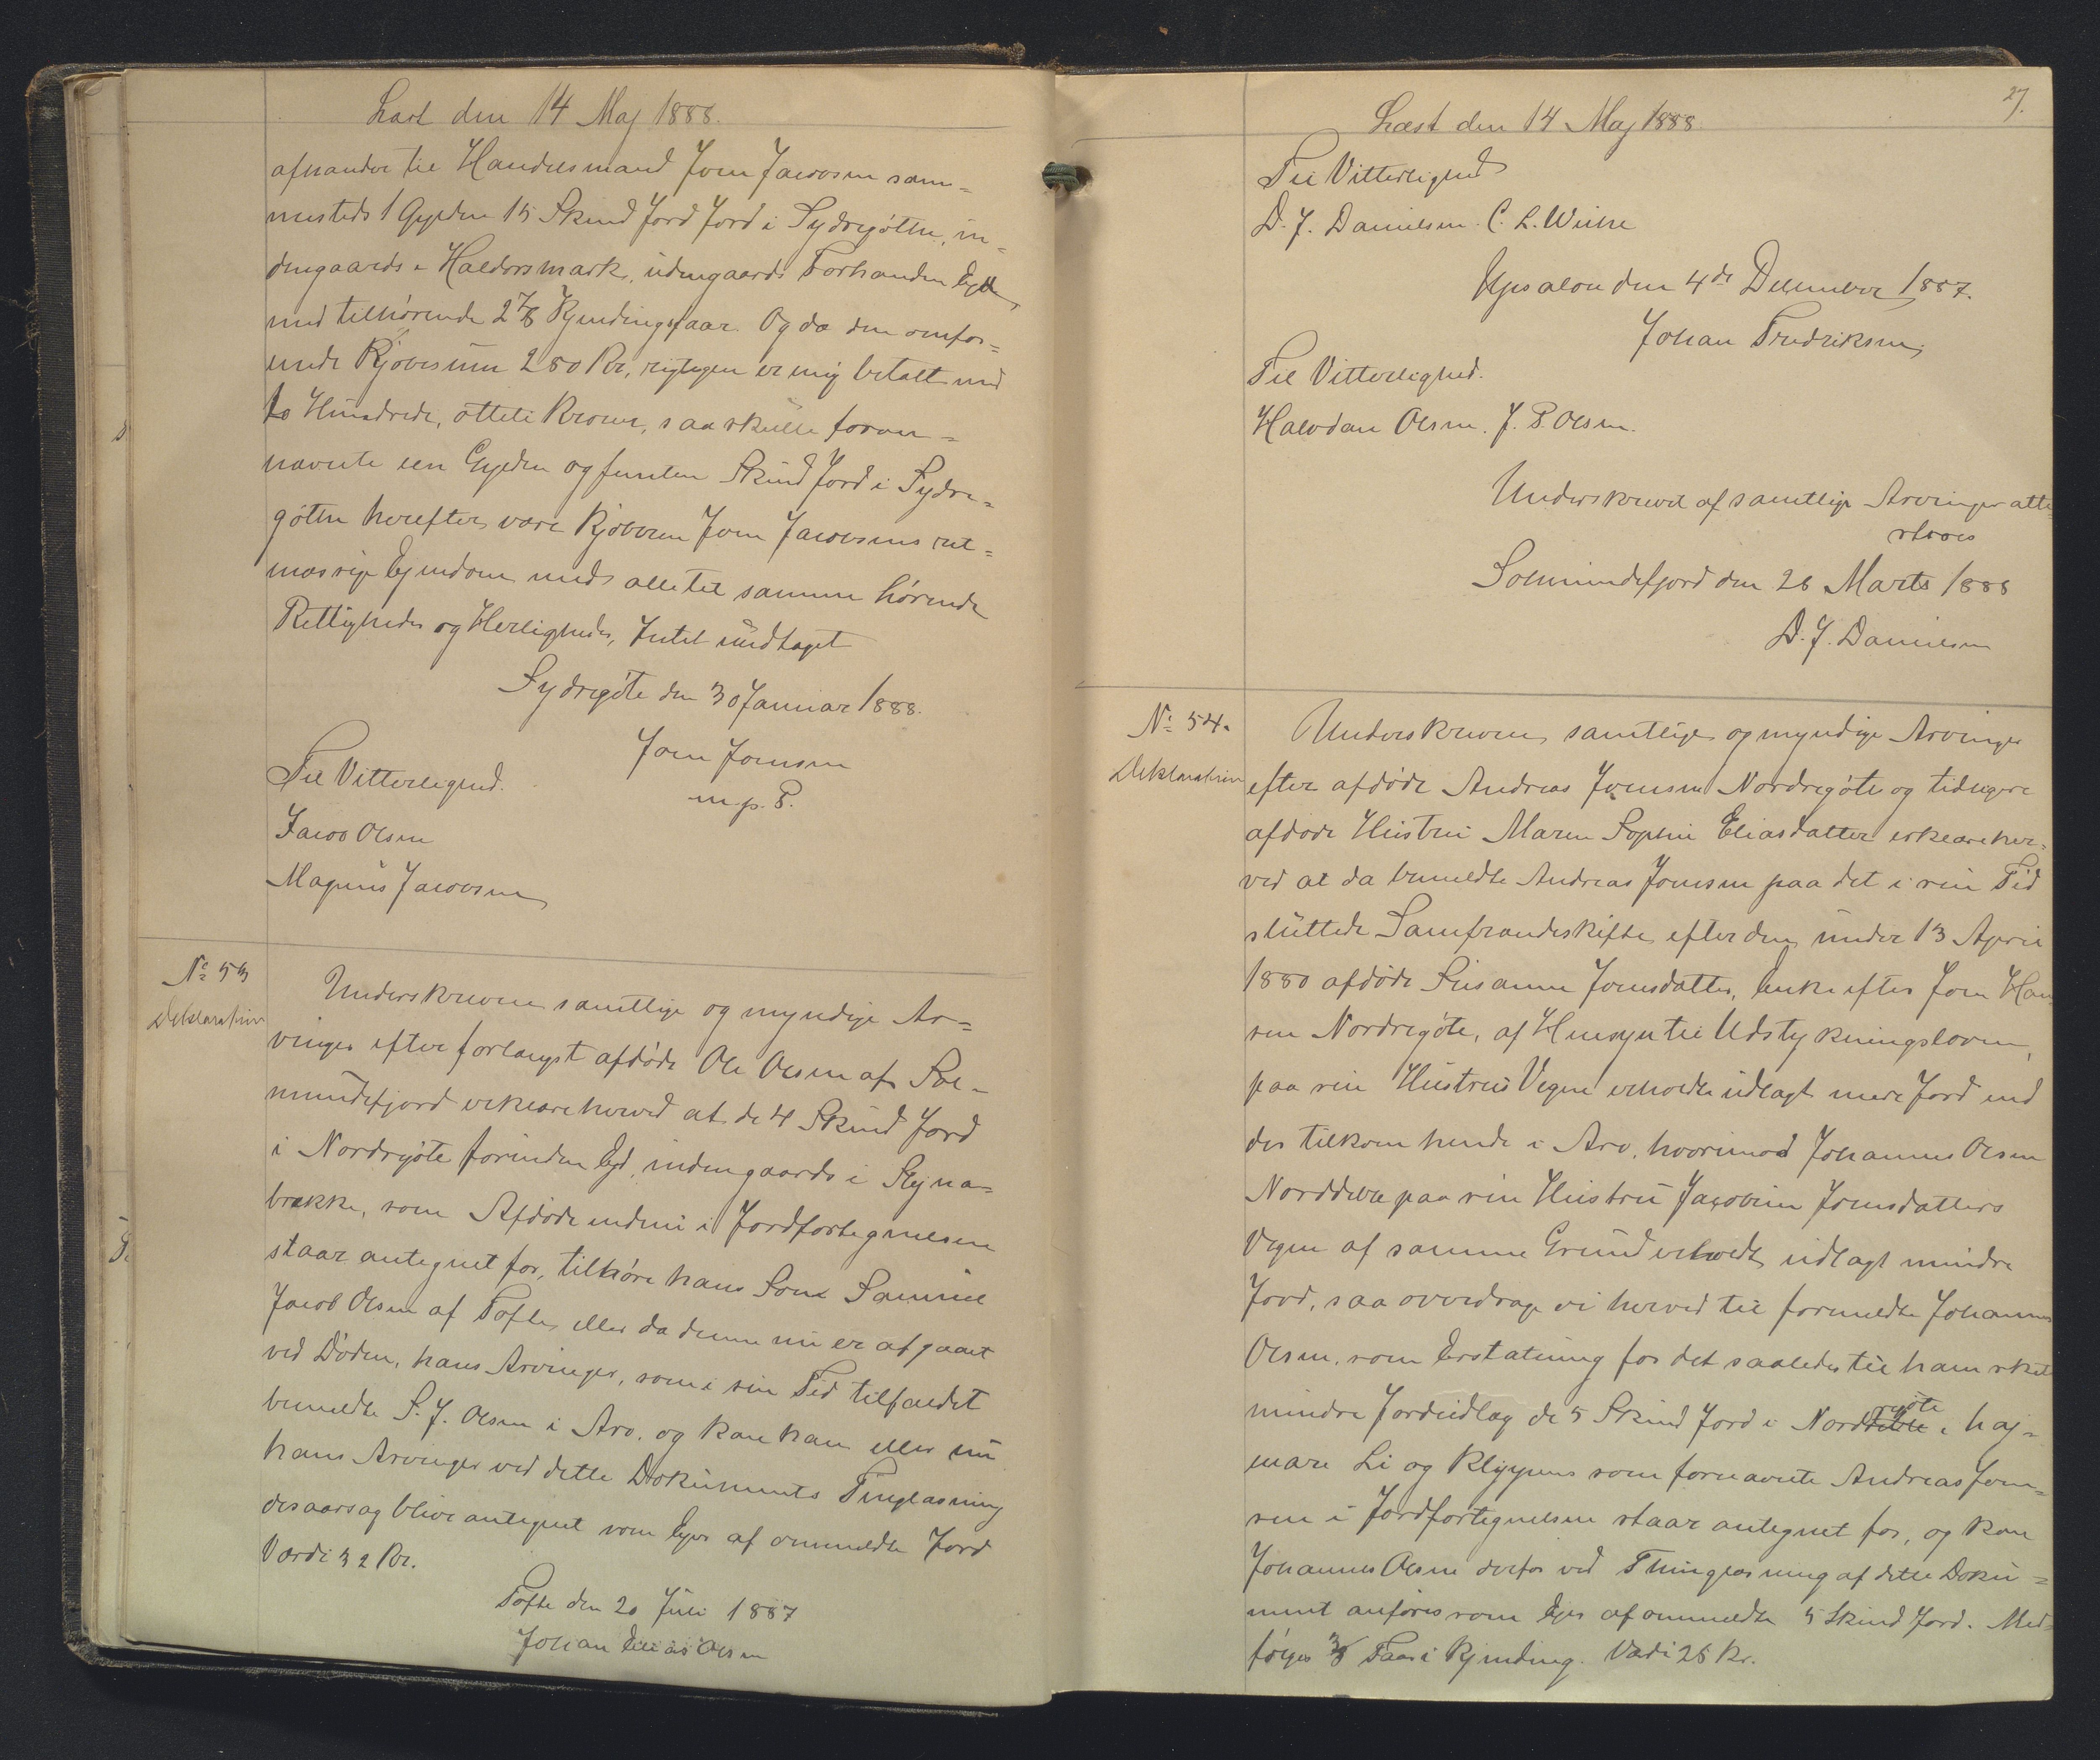 Læst den 14 Maj 1888.
afhænder til Handelsmand Joen Jacobsen sam=
mesteds 1 Gylden 15 Skind Jord Jord i Sydregöthe, in=
dengaards i Haldorsmark, udengaards Forhanden Eyde
med tilhørende 2 7/8 Kyndingsfaar. Og da den omfor=
enede Kjøbesum 280 Kr, rigtigen er mig betalt med
to Hundrede, otteti Kroner, saa skulle foran=
nævnte een Gylden og femten Skind Jord i Sydre=
göthe herefter være Kjøberen Joen Jacobsens ret=
mæssige Ejendom med alle til samme hørende
Rettigheder og Herligheder, Intet undtaget
Sydregöte den 30 Januar 1888.
Joen Joensen
m. p. P.
Til Vitterlighed.
Jacob Olsen
Magnus Jacobsen
No 53
Deklaration
Underskrevne samtlige og myndige Ar=
vinger efter forlængst afdøde Ole Olsen af Sol=
mundefjord erklære herved at de 4 Skind Jord
i Nordregöte forinden Eyd, indengaards i Sejna=
brekke, som Afdøde endnu i Jordfortegnelsen
staar antegnet for, tilhøre hans Søn Samuel
Jacob Olsen af Tofte, eller da denne nu er afgaaet
ved Døden, hans Arvinger, som i sin Tid tilfaldet
bemeldte S. J. Olsen i Arv, og kan han eller nu
hans Arvinger ved dette Dokuments Tinglæsning
desaarsag blive antegnet som Ejer af ommeldte Jord
Værdi 32 Kr.
Tofte den 20 Juli 1887
Johan Elias Olsen
27.
Læst den 14 Maj 1888
Til Vitterlighed
D. J. Danielsen. C. L. Weihe
Ypsalon den 4de December 1887.
Johan Fredriksen
Til Vitterlighed.
Halvdan Olsen. J. P. Olsen.
Underskrevet af samtlige Arvinger atte=
steres
Solmundefjord den 26 Marts 1888
D. J. Danielsen
No 54.
Deklaration
Underskrevne, samtlige og myndige Arvinger
efter afdøde Andreas Joensen Nordregöte og tidligere
afdøde Hustru Maren Sophie Eliasdatter erklære her=
ved at da bemeldte Andreas Joensen paa det i sin Tid
sluttede Samfrændeskifte efter den under 13 April
1880 afdøde Susanne Joensdatter, Enke efter Joen Han
sen Nordregöte, af Hensyn til Udstykningsloven,
paa sin Hustrus Vegne erholdte udlagt mere Jord end
der tilkom hende i Arv, hvorimod Johannes Olsen
Norddeble paa sin Hustru Jacobine Joensdatters
Vegne af samme Grund erholdt udlagt mindre
Jord, saa overdrage vi herved til formeldte Johannes
Olsen, som Erstatning for det saaledes til ham skete
mindre Jordudlæg de 5 Skind Jord i Norddeble regöte i haj=
mare Li og Klyppens som fornævnte Andreas Joen=
sen i Jordfortegnelsen staar antegnet for, og kan
Johannes Olsen derfor ved Thinglæsning af dette Doku=
ment anføres som Ejer af ommeldte 5 Skind Jord. Med=
følger 3/8 Faar i Kynding. Værdi 28 Kr.